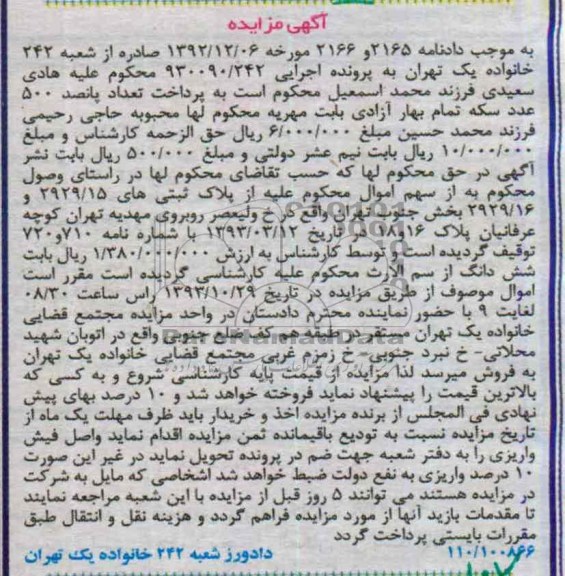 آگهی مزایده
به موجب دادنامه ۲۱۶۵و ۲۱۶۶ مورخه ۱۳۹۲/۱۲/۰۶ صادره از شعبه ۲۴۲
خانواده یک تهران به پرونده اجرایی ۹۳۰۰۹۰/۲۴۲ محکوم علیه هادی
سعیدی فرزند محمد اسمعیل محکوم است به پرداخت تعداد پانصد ۵۰۰
عدد سکه تمام بهار آزادی بابت مهریه محکوم لها محبوبه حاجی رحیمی
فرزند محمد حسین مبلغ ۶/۰۰۰/۰۰۰ ریال حق الزحمه کارشناس و مبلغ
۱۰/۰۰۰/۰۰۰ ریال بابت نیم عشر دولتی و مبلغ ۵۰۰/۰۰۰ ریال بابت نشر
آگهی در حق محکوم لها که حسب تقاضای محکوم لها در راستای وصول
محکوم به از سهم اموال محکوم علیه از پلاک ثبتی های ۲۹۲۹/۱۵ و
۲۹۲۹/۱۶ بخش جنوب تهران واقع در خ ولیعصر روبروی مهدیه تهران کوچه
عرفانیان پلاک ۱۶و۱۸ در تاریخ ۱۳۹۳/۰۳/۱۲ با شماره نامه ۷۱۰و۷۲۰
توقیف گردیده است و توسط کارشناس به ارزش ۱/۳۸۰/۰۰۰/۰۰۰ ریال بابت
شش دانگ از سم الارث محکوم علیه کارشناسی گردیده است مقرر است
اموال موصوف از طریق مزایده در تاریخ ۱۳۹۳/۱۰/۲۹ راس ساعت ۰۸/۳۰
لغایت ۹ با حضور نماینده محترم دادستان در واحد مزایده مجتمع قضایی
خانواده یک تهران مستقر در طبقه هم کف ضلع جنوبی واقع در اتوبان شهید
محلاتی- خ نبرد جنوبی- خ زمزم غربی مجتمع قضایی خانواده یک تهران
به فروش میرسد لذا مزایده از قیمت پایه کارشناسی شروع و به کسی که
بالاترین قیمت را پیشنهاد نماید فروخته خواهد شد و ۱۰ درصد بهای پیش
نهادی فی المجلس از برنده مزایده اخذ و خریدار باید ظرف مهلت یک ماه از
تاریخ مزایده نسبت به تودیع باقیمانده ثمن مزایده اقدام نماید واصل فیش
واریزی را به دفتر شعبه جهت ضم در پرونده تحویل نماید در غیر این صورت
۱۰ درصد واریزی به نفع دولت ضبط خواهد شد اشخاصی که مایل به شرکت
در مزایده هستند می توانند ۵ روز قبل از مزایده با این شعبه مراجعه نمایند
تا مقدمات بازید آنها از مورد مزایده فراهم گردد و هزینه نقل و انتقال طبق
مقررات بایستی پرداخت گردد
۱۱۰/۱۰۰۸۶۶ دادورز شعبه ۲۴۲ خانواده یک تهران